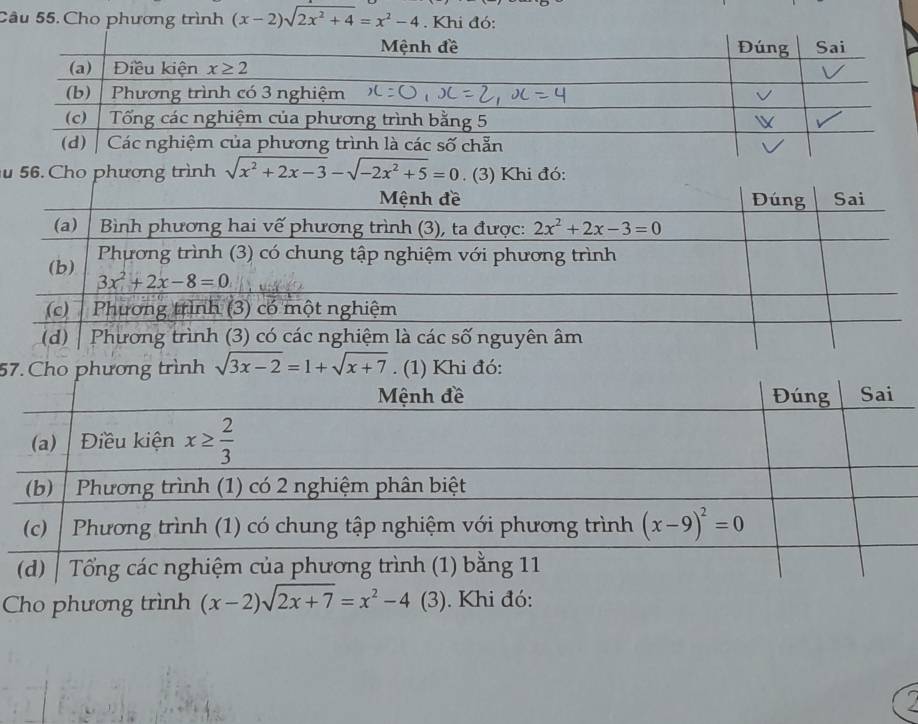 Câu 55. Cho phương trình (x−2)√(2x²+4) = x²−4. Khi đó:
Mệnh đề Đúng Sai
(a) Điều kiện x ≥ 2 ✓
(b) Phương trình có 3 nghiệm x=0, x=2, x=4 ✓
(c) Tổng các nghiệm của phương trình bằng 5 ✓
(d) Các nghiệm của phương trình là các số chẵn ✓
u 56. Cho phương trình √(x²+2x−3) − √(−2x²+5) = 0. (3) Khi đó:
Mệnh đề Đúng Sai
(a) Bình phương hai vế phương trình (3), ta được: 2x²+2x−3=0
(b) Phương trình (3) có chung tập nghiệm với phương trình
3x²+2x−8=0
(c) Phương trình (3) có một nghiệm
(d) Phương trình (3) có các nghiệm là các số nguyên âm
57. Cho phương trình √(3x−2) = 1+√(x+7). (1) Khi đó:
Mệnh đề Đúng Sai
(a) Điều kiện x ≥ 2/3
(b) Phương trình (1) có 2 nghiệm phân biệt
(c) Phương trình (1) có chung tập nghiệm với phương trình (x−9)²=0
(d) Tổng các nghiệm của phương trình (1) bằng 11
Cho phương trình (x−2)√(2x+7) = x²−4 (3). Khi đó:
2